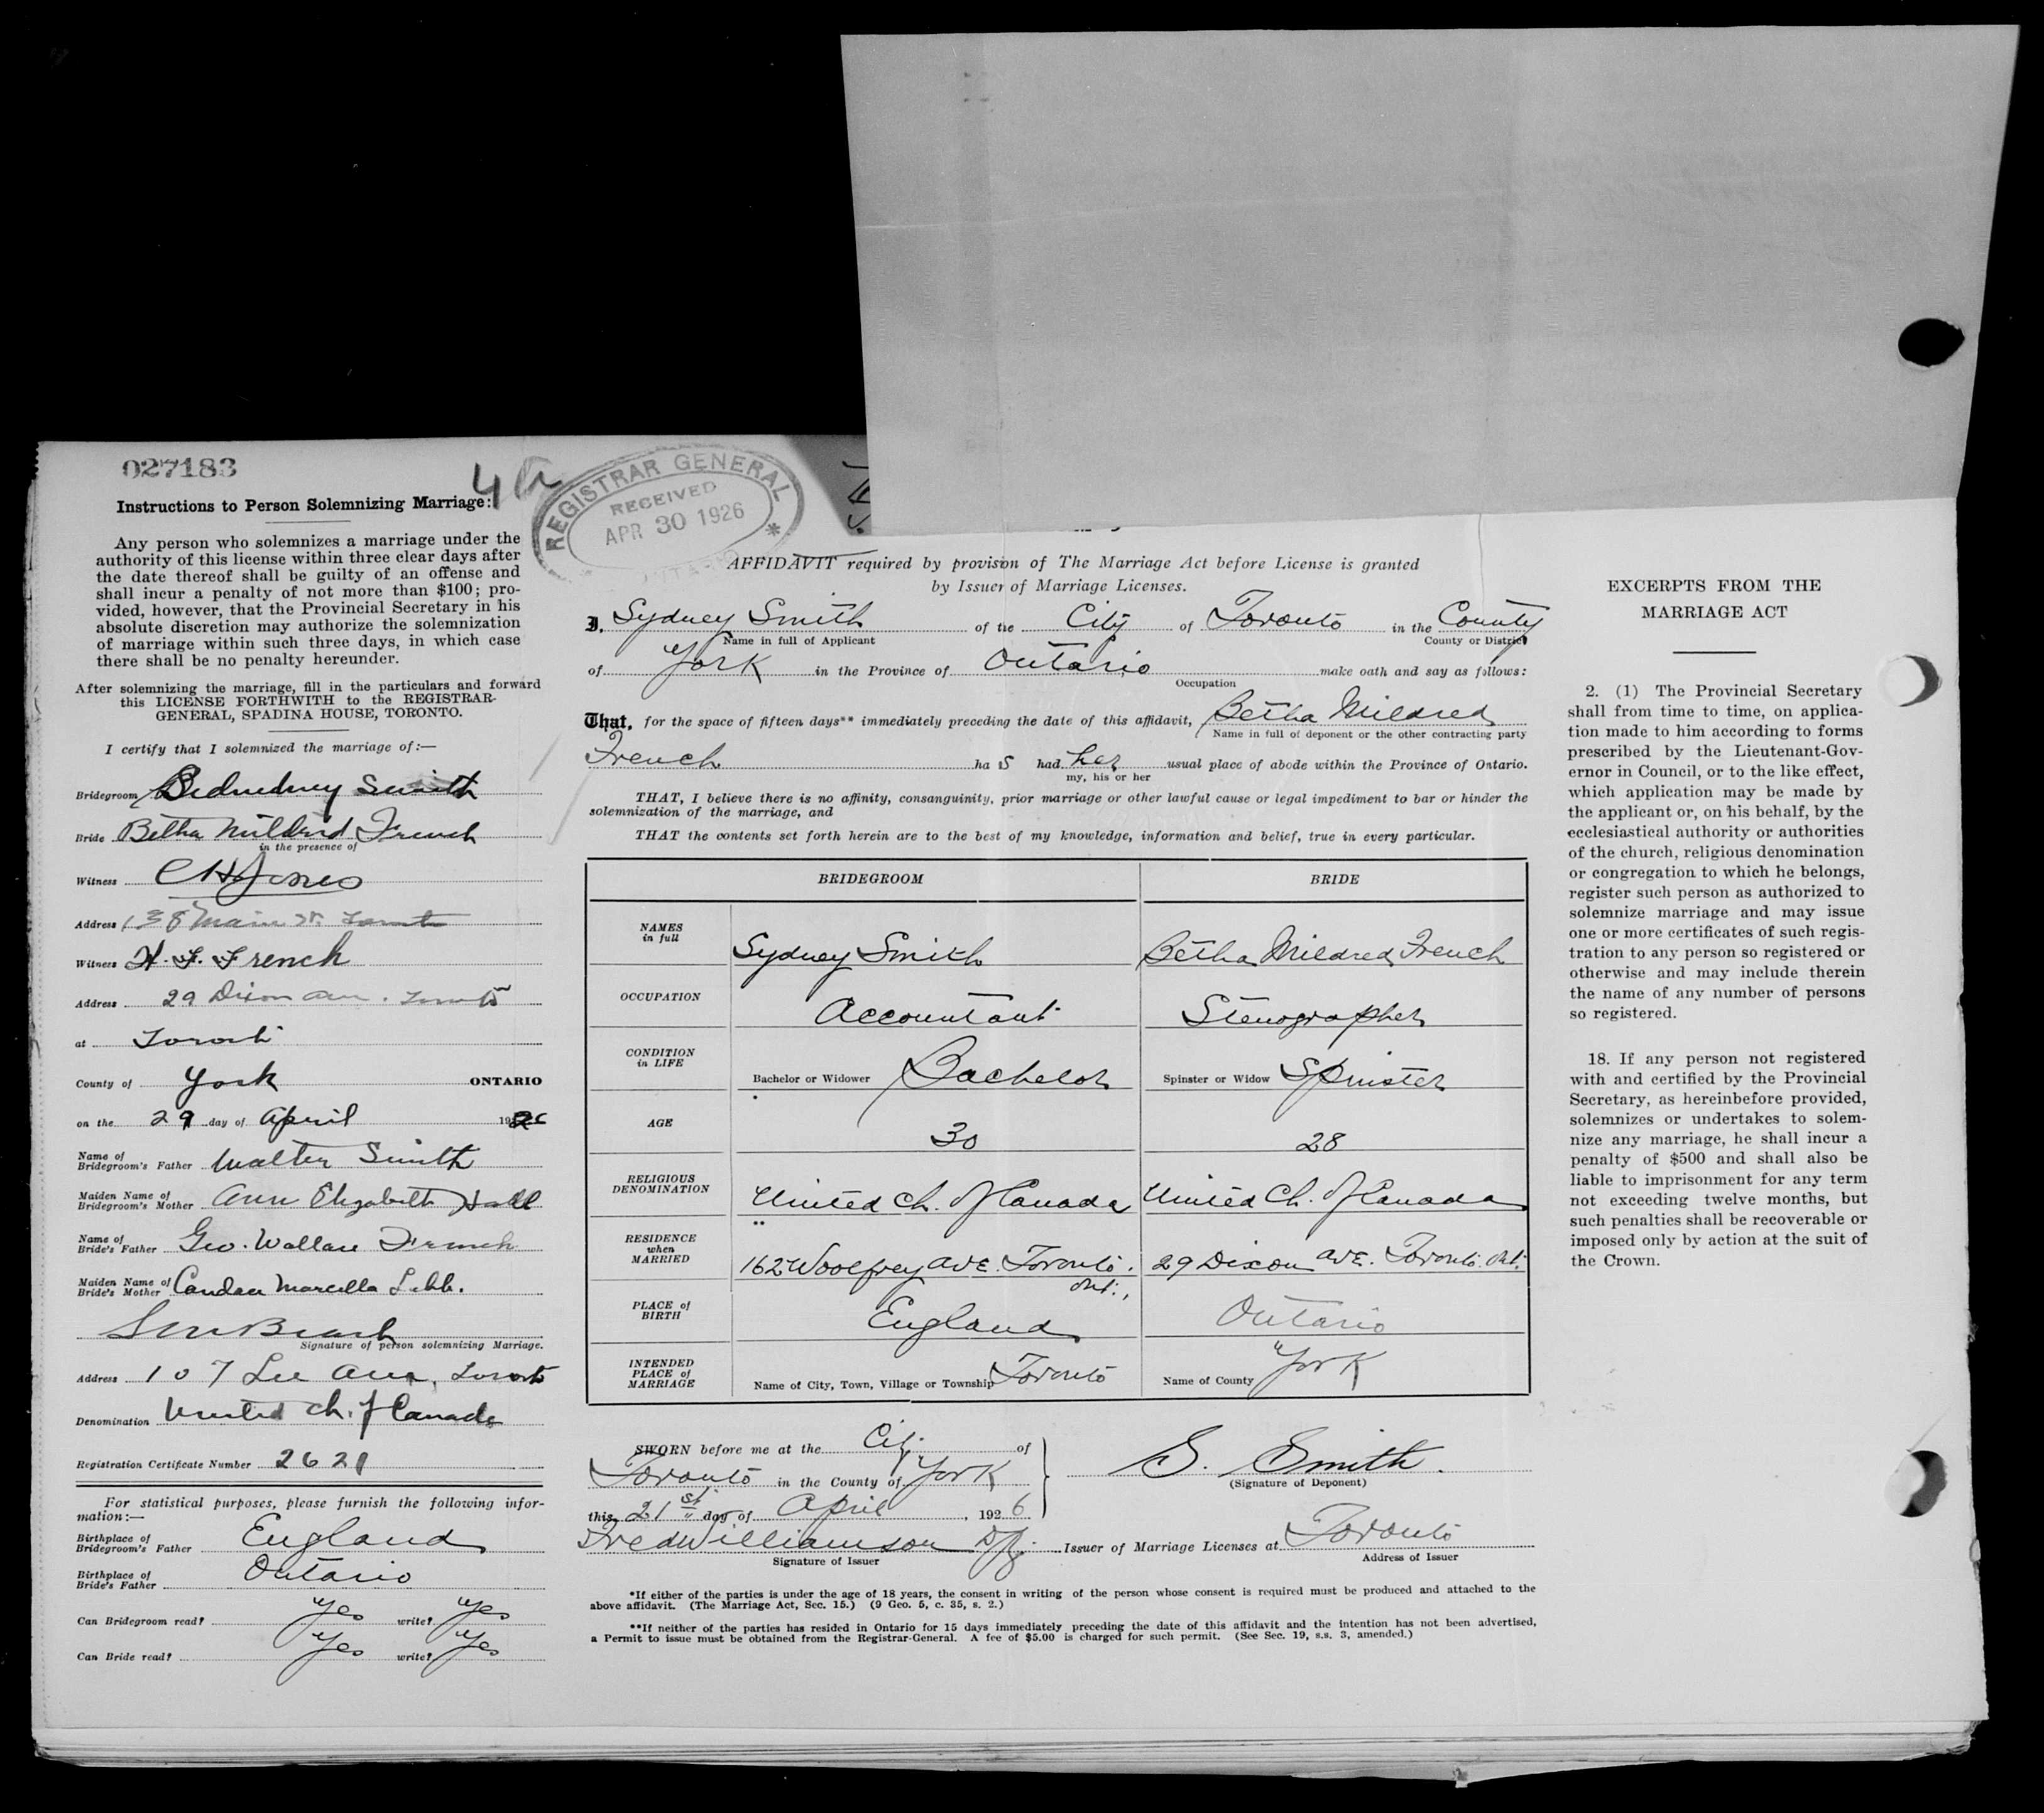 027183
4
Instructions to Person Solemnizing Marriage:
Any person who solemnizes a marriage under the
authority of this license within three clear days after
the date thereof shall be guilty of an offense and
shall incur a penalty of not more than $100; pro-
vided, however, that the Provincial Secretary in his
absolute discretion may authorize the solemnization
of marriage within such three days, in which case
there shall be no penalty hereunder.
After solemnizing the marriage, fill in the particulars and forward
this LICENSE FORTHWITH to the REGISTRAR-
GENERAL, SPADINA HOUSE, TORONTO.
I certify that I solemnized the marriage of:—
Bridegroom Smith
Bride Betha Mildred French
in the presence of
Witness C H Jones
Address 138 Main St. Toronto
Witness H. F. French
Address 29 Dixon Ave. Toronto
at Toronto
County of York ONTARIO
on the 29 day of April 1926
Name of Bridegroom's Father Walter Smith
Maiden Name of Bridegroom's Mother Ann Elizabeth Hall
Name of Bride's Father Geo. Wallace French
Maiden Name of Bride's Mother Candace Marcella
Signature of person solemnizing Marriage.
Address 107 Lee Ave, Toronto
Denomination United Ch. of Canada
Registration Certificate Number 2621
For statistical purposes, please furnish the following infor-
mation:—
Birthplace of Bridegroom's Father England
Birthplace of Bride's Father Ontario
Can Bridegroom read? Yes write? Yes
Can Bride read? Yes write? Yes
REGISTRAR GENERAL
RECEIVED
APR 30 1926
ONTARIO
AFFIDAVIT required by provision of The Marriage Act before License is granted
by Issuer of Marriage Licenses.
I, Sydney Smith of the City of Toronto in the County
Name in full of Applicant County or District
of York in the Province of Ontario make oath and say as follows:
Occupation
That, for the space of fifteen days** immediately preceding the date of this affidavit, Betha Mildred
Name in full of deponent or the other contracting party
French has had her usual place of abode within the Province of Ontario.
my, his or her
THAT, I believe there is no affinity, consanguinity, prior marriage or other lawful cause or legal impediment to bar or hinder the
solemnization of the marriage, and
THAT the contents set forth herein are to the best of my knowledge, information and belief, true in every particular.
BRIDEGROOM BRIDE
NAMES in full Sydney Smith Betha Mildred French
OCCUPATION Accountant Stenographer
CONDITION in LIFE Bachelor or Widower Bachelor Spinster or Widow Spinster
AGE 30 28
RELIGIOUS DENOMINATION United Ch. of Canada United Ch. of Canada
RESIDENCE when MARRIED 162 Woolfrey Ave. Toronto. Ont., 29 Dixon Ave. Toronto. Ont.
PLACE of BIRTH England Ontario
INTENDED PLACE of MARRIAGE Name of City, Town, Village or Township Toronto Name of County York
SWORN before me at the City of
Toronto in the County of York
this 21st day of April, 1926
S. Smith.
(Signature of Deponent)
Fred Williamson Issuer of Marriage Licenses at Toronto
Signature of Issuer Address of Issuer
*If either of the parties is under the age of 18 years, the consent in writing of the person whose consent is required must be produced and attached to the
above affidavit. (The Marriage Act, Sec. 15.) (9 Geo. 5, c. 35, s. 2.)
**If neither of the parties has resided in Ontario for 15 days immediately preceding the date of this affidavit and the intention has not been advertised,
a Permit to issue must be obtained from the Registrar-General. A fee of $5.00 is charged for such permit. (See Sec. 19, s.s. 3, amended.)
EXCERPTS FROM THE
MARRIAGE ACT
2. (1) The Provincial Secretary
shall from time to time, on applica-
tion made to him according to forms
prescribed by the Lieutenant-Gov-
ernor in Council, or to the like effect,
which application may be made by
the applicant or, on his behalf, by the
ecclesiastical authority or authorities
of the church, religious denomination
or congregation to which he belongs,
register such person as authorized to
solemnize marriage and may issue
one or more certificates of such regis-
tration to any person so registered or
otherwise and may include therein
the name of any number of persons
so registered.
18. If any person not registered
with and certified by the Provincial
Secretary, as hereinbefore provided,
solemnizes or undertakes to solem-
nize any marriage, he shall incur a
penalty of $500 and shall also be
liable to imprisonment for any term
not exceeding twelve months, but
such penalties shall be recoverable or
imposed only by action at the suit of
the Crown.